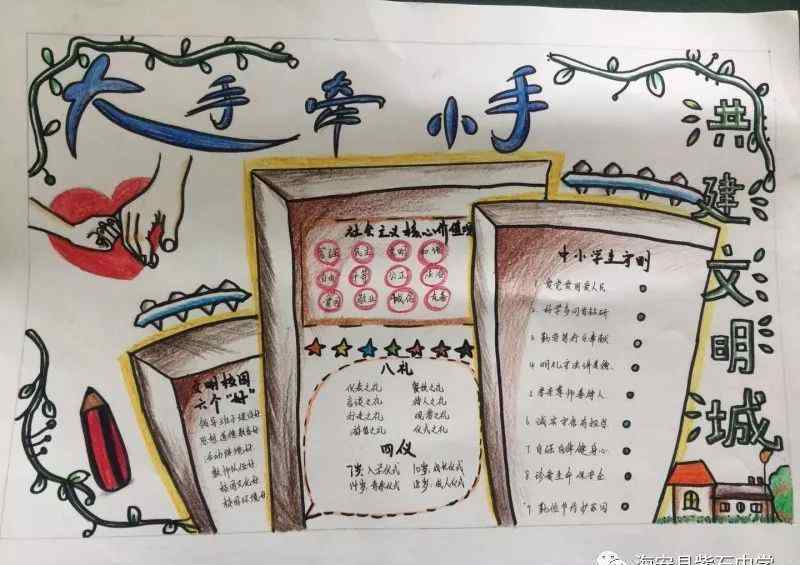 大手牵小手
共建文明城
文明校园
六个“好”
领导班子建设好
思想道德教育好
活动阵地好
教师队伍好
校园文化好
校园环境好
社会主义核心价值观
富强 民主 文明 和谐
自由 平等 公正 法治
爱国 敬业 诚信 友善
八礼
仪表之礼 餐饮之礼
言谈之礼 待人之礼
行走之礼 观赏之礼
游览之礼 仪式之礼
四仪
7岁,入学仪式 10岁,成长仪式
14岁,青春仪式 18岁,成人仪式
中小学生守则
1. 爱党爱国爱人民
2. 好学多问肯钻研
3. 勤劳笃行乐奉献
4. 明礼守法讲美德
5. 孝亲尊师善待人
6. 诚实守信有担当
7. 自强自律健身心
8. 珍爱生命保安全
9. 勤俭节约护家园
海安县紫石中学